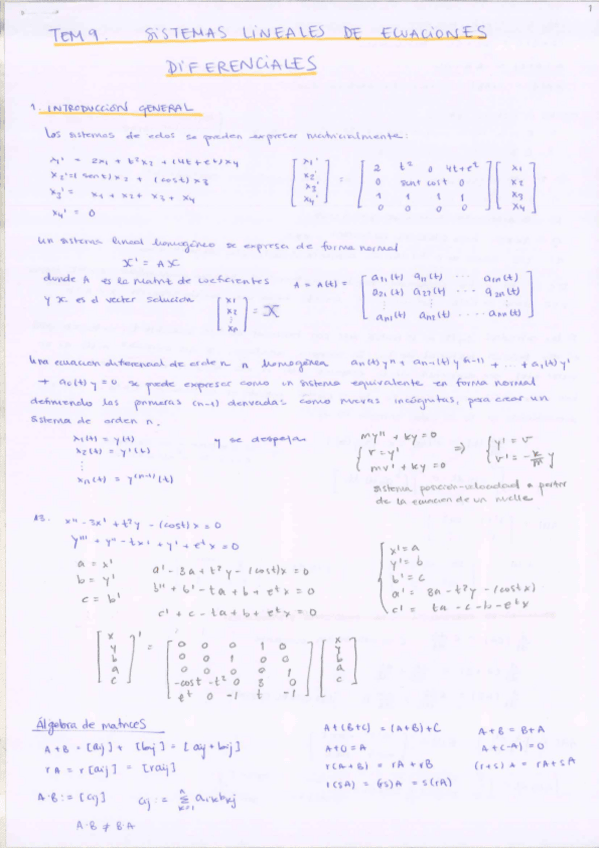 1
TEM 9. SISTEMAS LINEALES DE ECUACIONES
DIFERENCIALES
1. INTRODUCCIÓN GENERAL
Los sistemas de edos se pueden expresar matricialmente:
x₁' = 2x₁ + t²x₂ + (4t+eᵗ)x₄
x₂' = (sent)x₂ + (cost)x₃
x₃' = x₁ + x₂ + x₃ + x₄
x₄' = 0
[x₁' x₂' x₃' x₄'] = [2 t² 0 4t+eᵗ; 0 sent cost 0; 1 1 1 1; 0 0 0 0] [x₁ x₂ x₃ x₄]
Un sistema lineal homogéneo se expresa de forma normal
X' = AX
donde A es la matriz de coeficientes A = A(t) = [a₁₁(t) a₁₁(t) ... a₁ₙ(t); a₂₁(t) a₂₂(t) ... a₂ₙ(t); aₙ₁(t) aₙ₂(t) ... aₙₙ(t)]
y x es el vector solución [x₁ x₂ ⋮ xₙ] = X
Una ecuación diferencial de orden n homogénea aₙ(t)yⁿ + aₙ₋₁(t)y⁽ⁿ⁻¹⁾ + ... + a₁(t)y'
+ a₀(t)y = 0 se puede expresar como un sistema equivalente en forma normal
definiendo las primeras (n-1) derivadas como nuevas incógnitas, para crear un
sistema de orden n.
x₁(t) = y(t) y se despejan
x₂(t) = y'(t)
⋮
xₙ(t) = y⁽ⁿ⁻¹⁾(t)
my'' + ky = 0
{ v = y'
mv' + ky = 0
⇒ { y' = v
v' = -k/m y
Sistema posición-velocidad a partir
de la ecuación de un muelle
x'' - 3x' + t²y - (cost)x = 0
y''' + y'' - tx' + y' + eᵗx = 0
a = x'
b = y'
c = b'
a' - 8a + t²y - (cost)x = 0
b'' + b' - ta + b + eᵗx = 0
c' + c - ta + b + eᵗx = 0
{ x' = a
y' = b
b' = c
a' = 8a - t²y - (cost x)
c' = ta - c - b - eᵗx
[x y b a c]' = [0 0 0 1 0; 0 0 1 0 0; 0 0 0 0 1; -cost -t² 0 8 0; eᵗ 0 -1 t -1] [x y b a c]
Álgebra de matrices
A+B = [aij] + [bij] = [aij + bij]
rA = r[aij] = [raij]
A·B := [cij] cij := Σ aik bkj
A·B ≠ B·A
A+(B+C) = (A+B)+C
A+0 = A
r(A+B) = rA + rB
r(sA) = (rs)A = s(rA)
A+B = B+A
A+(-A) = 0
(r+s)A = rA + sA